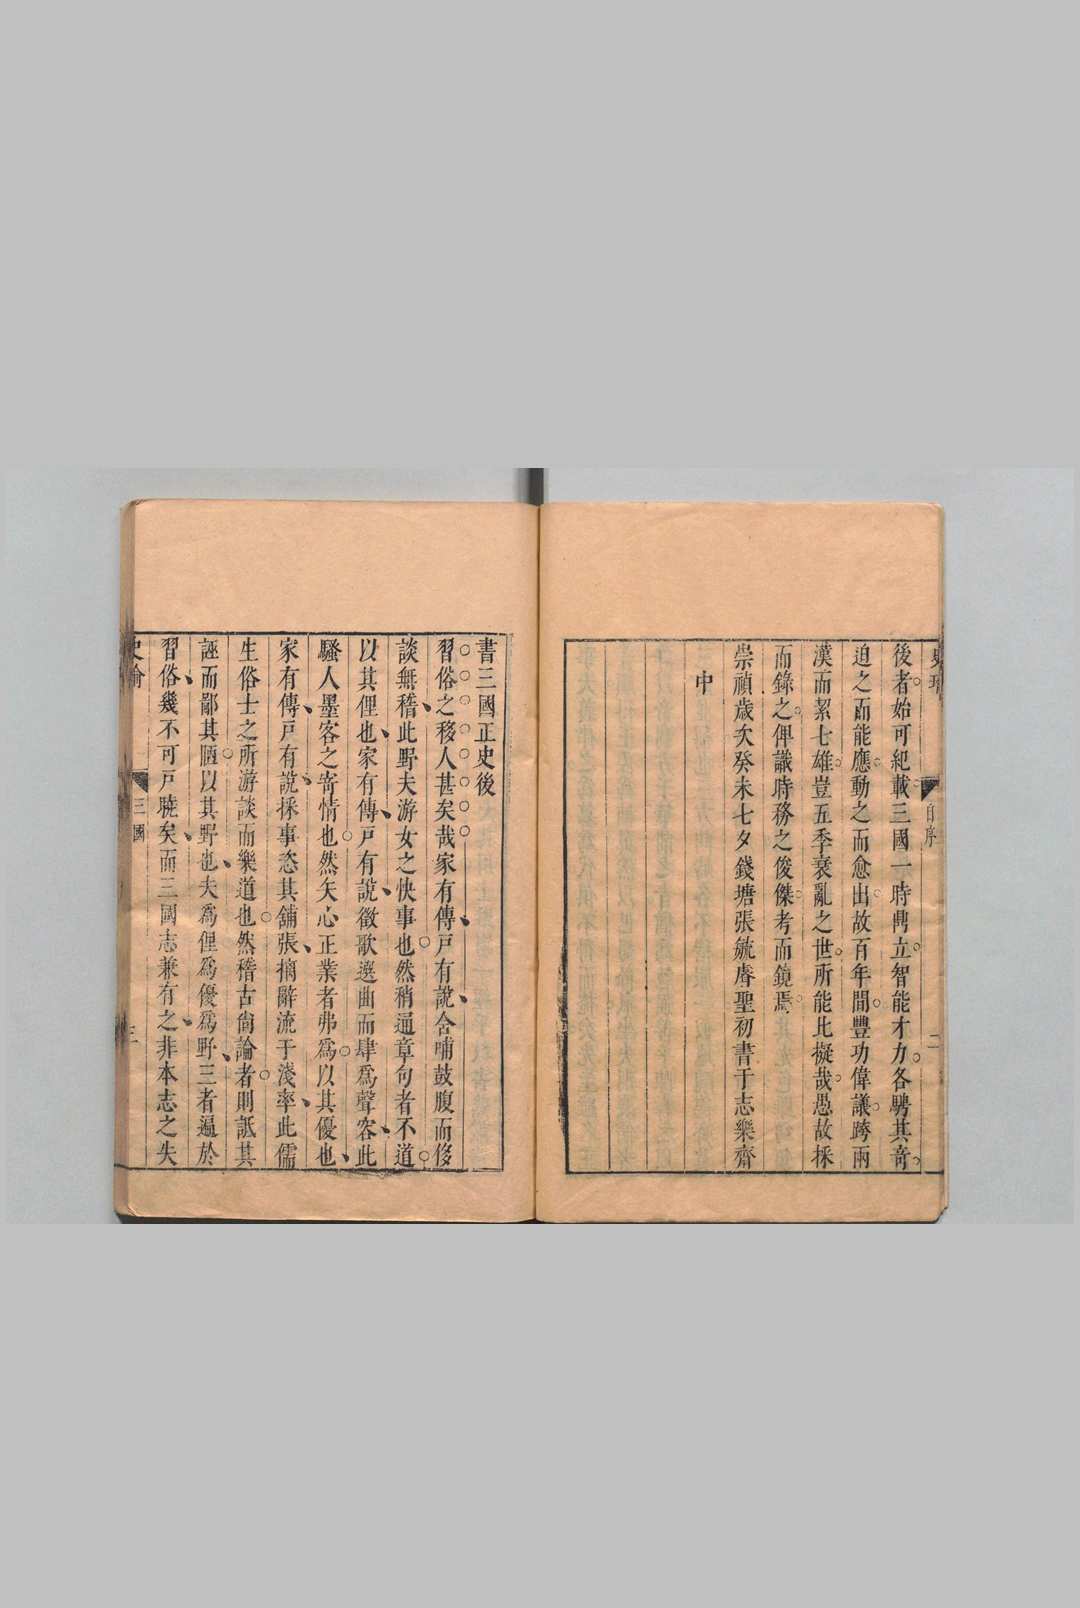 自序
二
後者始可紀載三國一時鼎立智能才力各騁其竒
迫之而能應動之而愈出故百年閒豐功偉議跨兩
漢而絜七雄豈五季衰亂之世所能比擬哉愚故採
而錄之俾識時務之俊傑考而鏡焉
崇禎歲次癸未七夕錢塘張毓睿聖初書于志樂齋
中
書三國正史後
習俗之移人甚矣哉家有傳戸有說含哺鼓腹而侈
談無稽此野夫游女之快事也然稍通章句者不道
以其俚也家有傳戸有說徵歌選曲而肆爲聲容此
騷人墨客之寄情也然矢心正業者弗爲以其優也
家有傳戸有說採事恣其舖張摘辭流于淺率此儒
生俗士之所游談而樂道也然稽古尙論者則詆其
誣而鄙其陋以其野也夫爲俚爲優爲野三者遍於
習俗幾不可戸曉矣而三國志兼有之非本志之失
三國
三